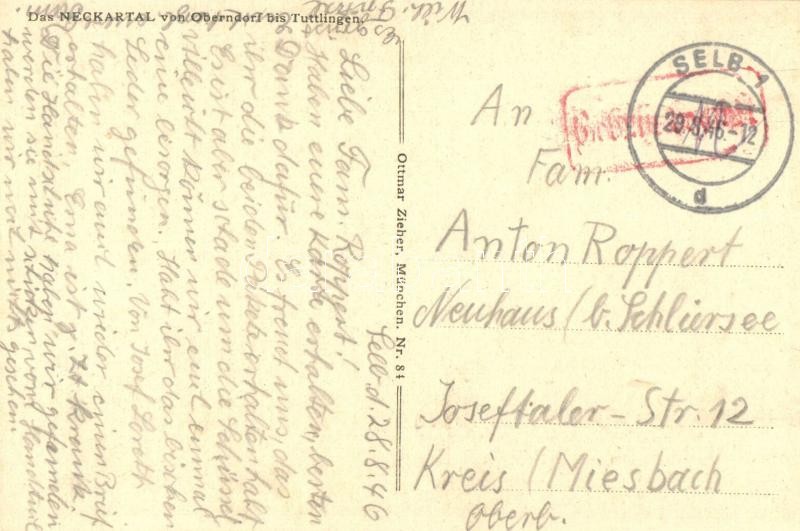 Das NECKARTAL von Oberndorf bis Tuttlingen.
Selb d. 28.8.46
Liebe Fam. Roppert!
Haben eure Karte erhalten, besten
Dank dafür. Es freut uns, das
ihr die beiden Pakete erhalten habt
Es ist aber schade um die
villeicht können wir eul einmal
eine besorgen. Habt ihr das bischen
Leder gefunden. Von Josef Lorett
haben wir auch wieder einen Brief
erhalten. Erna ist z. Zt. krank
Die Handschuhe haben wir gefunden
werden sie mit
haben wir noch nichts gesehen
Ottmar Zieher, München. Nr. 84
SELB 1
29.8.46.-12
d
An
Fam.
Anton Roppert
Neuhaus / b. Schliersee
Joseftaler-Str. 12
Kreis / Miesbach
Oberb.